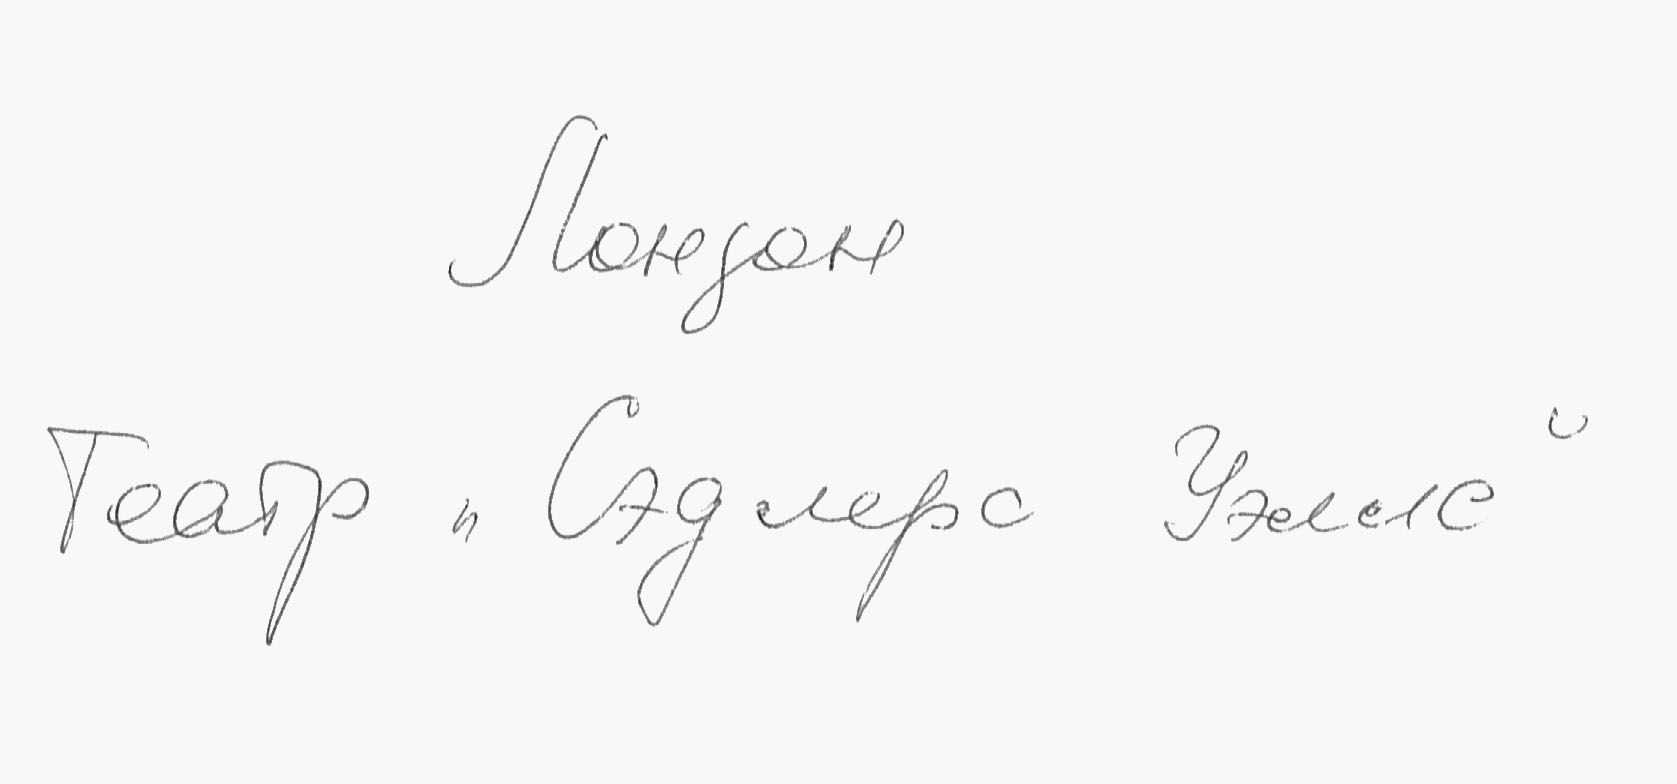 Лондон
Театр „Сэдлерс Уэллс“